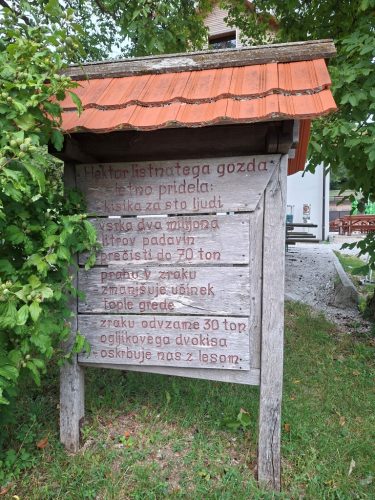 Hektar listnatega gozda
- letno pridela:
- kisika za sto ljudi
- vsrka dva milijona
litrov padavin
- prečisti do 70 ton
prahu v zraku
- zmanjšuje učinek
tople grede
- zraku odvzame 30 ton
ogljikovega dvokisa
- oskrbuje nas z lesom.